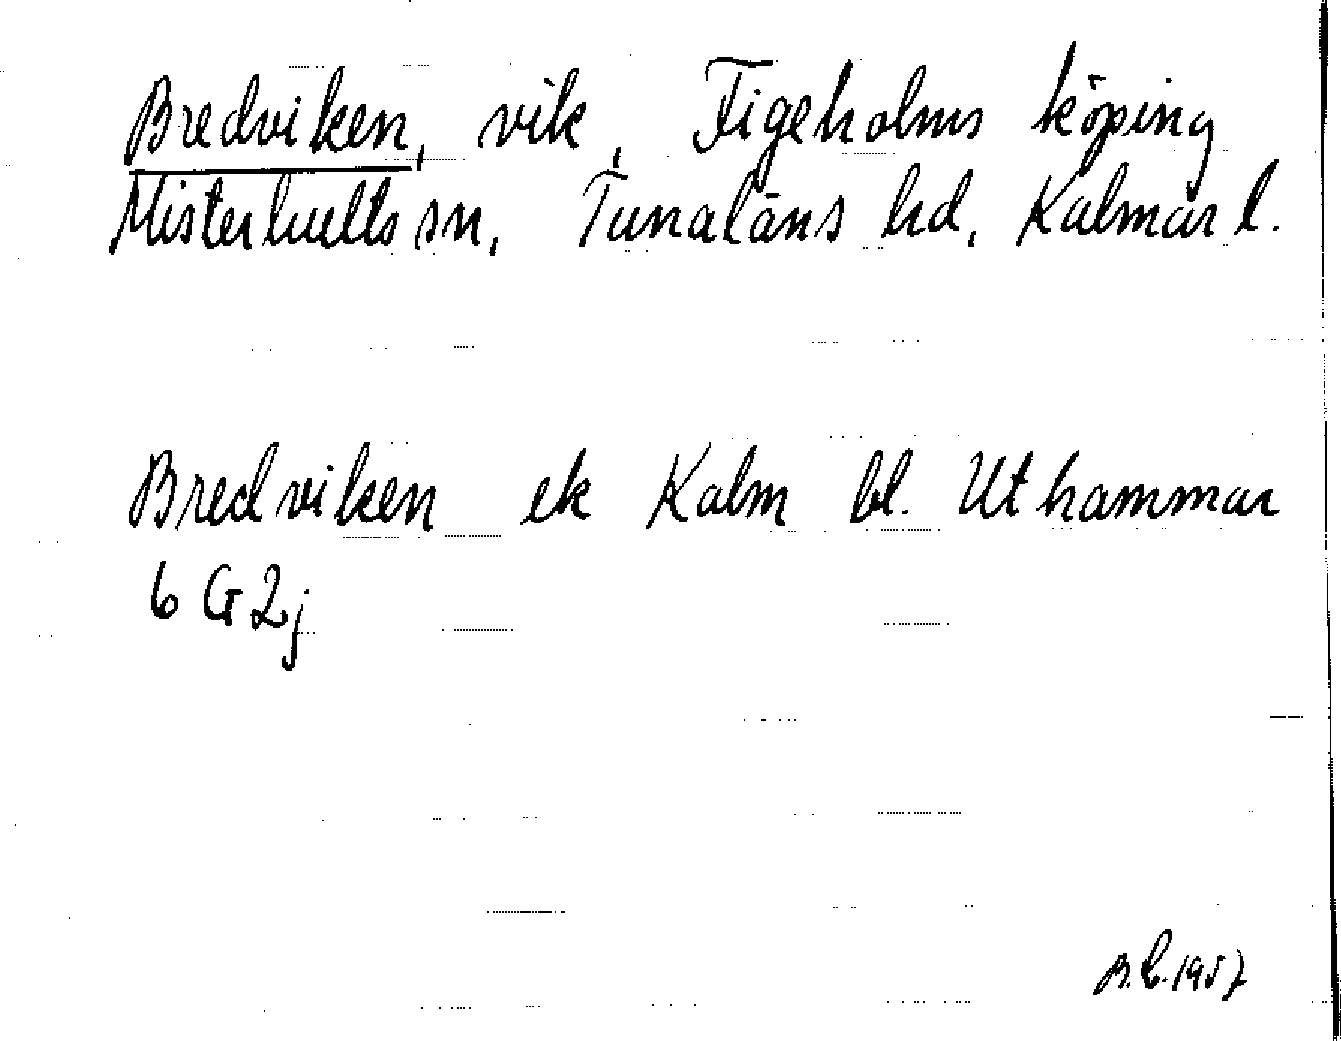 Bredviken, vik, Figeholms köping
Misterhults sn, Tunaläns hd, Kalmar l.
Bredviken ek Kalm bl. Uthammar
6 G 2j
B.L. 1957